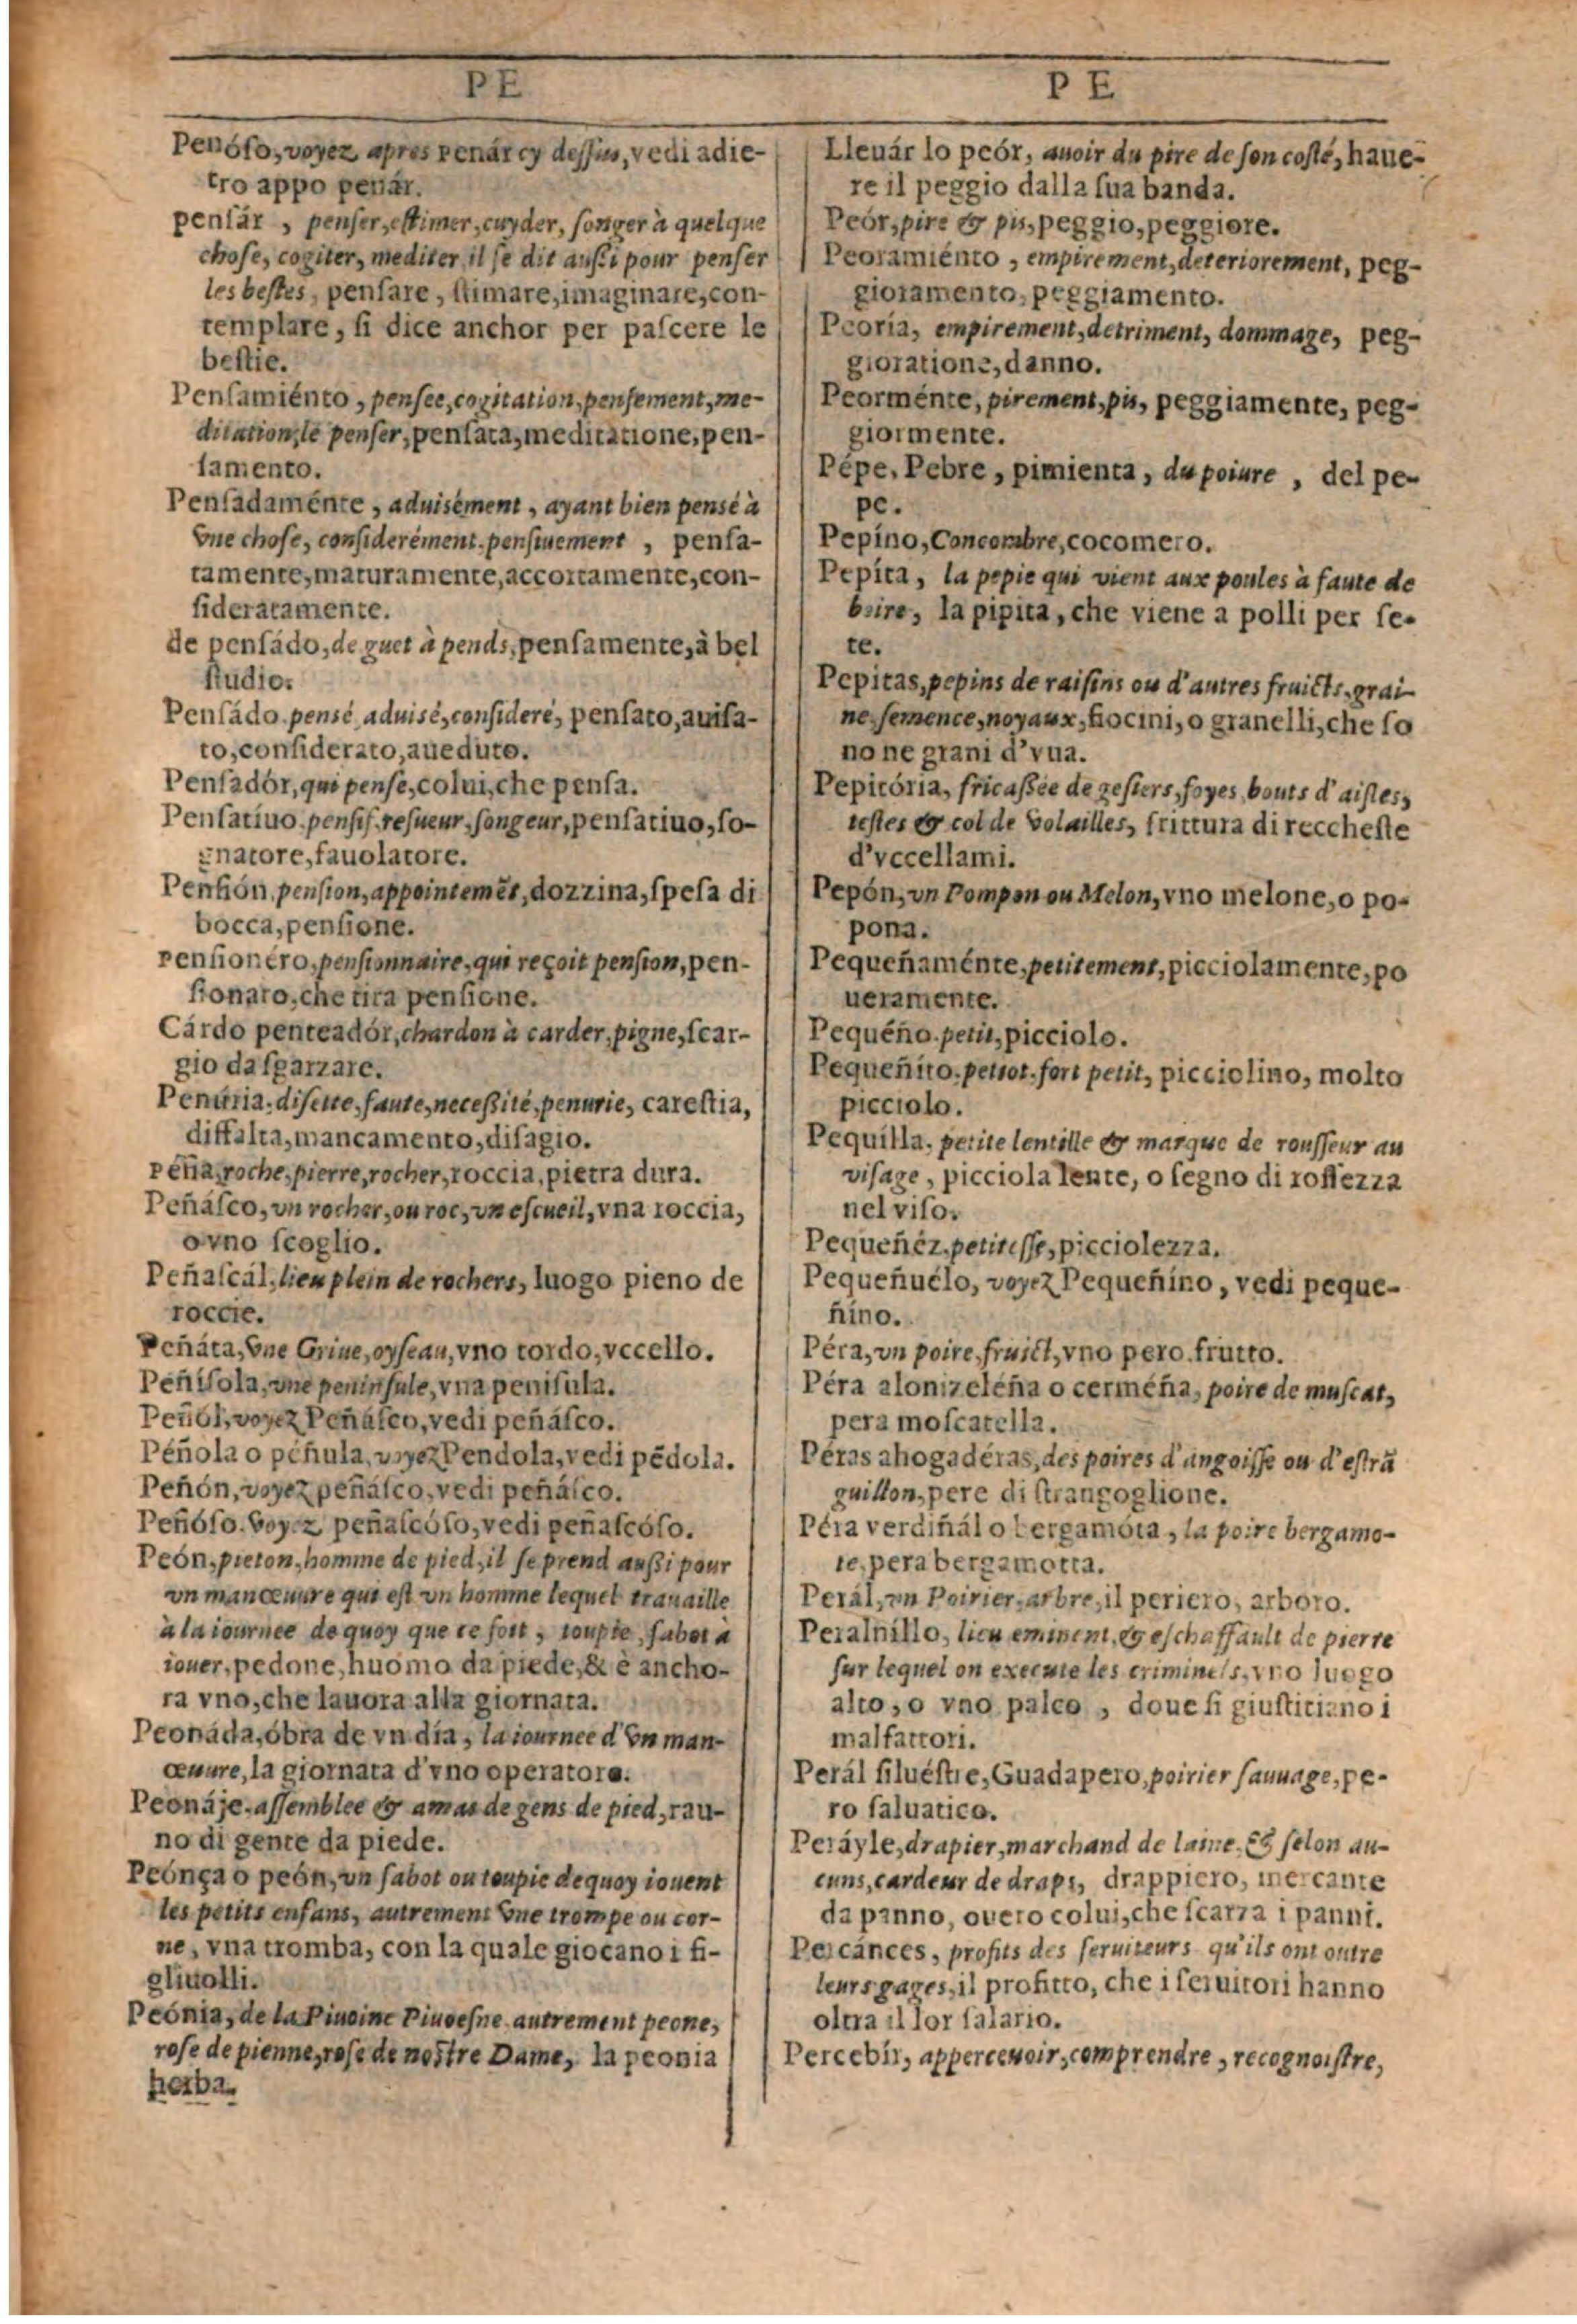 PE
Penóſo, voyez apres penár cy deſſus, vedi adie-
tro appo penár.
penſár , penſer, eſtimer, cuyder, ſonger à quelque
choſe, cogiter, mediter il ſe dit auſſi pour penſer
les beſtes, penſare, ſtimare, imaginare, con-
templare, ſi dice anchor per paſcere le
beſtie.
Penſamiénto, penſee, cogitation, penſement, me-
ditation, le penſer, penſata, meditatione, pen-
ſamento.
Penſadaménte, aduisément, ayant bien pensé à
vne choſe, considerément. penſiuement , penſa-
tamente, maturamente, accortamente, con-
ſideratamente.
de penſádo, de guet à pends, penſamente, à bel
ſtudio.
Penſádo. pensé aduisé, consideré, penſato, auiſa-
to, conſiderato, aueduto.
Penſadór, qui penſe, colui, che penſa.
Penſatiuo. penſif. reſueur, ſongeur, penſatiuo, ſo-
gnatore, fauolatore.
Penſión. penſion, appointemēt, dozzina, ſpeſa di
bocca, penſione.
penſionéro, penſionnaire, qui reçoit penſion, pen-
ſionato, che tira penſione.
Cárdo penteadór, chardon à carder, pigne, ſcar-
gio da ſgarzare.
Penúria, diſette, faute, neceſſité, penurie, careſtia,
diffalta, mancamento, diſagio.
péña, roche, pierre, rocher, roccia, pietra dura.
Peñáſco, vn rocher, ou roc, vn eſcueil, vna roccia,
o vno ſcoglio.
Peñaſcál, lieu plein de rochers, luogo pieno de
roccie.
Peñáta, vne Griue, oyſeau, vno tordo, vccello.
Peñíſola, vne peninſule, vna peniſula.
Peñól, voyez Peñáſco, vedi peñáſco.
Péñola o péñula, voyez Pendola, vedi pēdola.
Peñón, voyez peñáſco, vedi peñáſco.
Peñóſo. Voyez peñaſcóſo, vedi peñaſcóſo.
Peón, pieton, homme de pied, il ſe prend auſſi pour
vn manœuure qui eſt vn homme lequel trauaille
à la iournee de quoy que ce ſoit , toupie, ſabot à
iouer, pedone, huomo da piede, & è ancho-
ra vno, che lauora alla giornata.
Peonáda, óbra de vn día, la iournee d'vn man-
œuure, la giornata d'vno operatore.
Peonáje. aſſemblee & amas de gens de pied, rau-
no di gente da piede.
Peónça o peón, vn ſabot ou toupie dequoy iouent
les petits enfans, autrement vne trompe ou cor-
ne, vna tromba, con la quale giocano i fi-
gliuolli.
Peónia, de la Piuoine Piuoeſne. autrement peone,
roſe de pienne, roſe de noſtre Dame, la peonia
herba.
P E
Lleuár lo peór, auoir du pire de ſon coſté, haue-
re il peggio dalla ſua banda.
Peór, pire & pis, peggio, peggiore.
Peoramiénto , empirement, deteriorement, peg-
gioramento, peggiamento.
Peoría, empirement, detriment, dommage, peg-
gioratione, danno.
Peorménte, pirement, pis, peggiamente, peg-
giormente.
Pépe, Pebre, pimienta, du poiure , del pe-
pe.
Pepíno, Concombre, cocomero.
Pepíta, la pepie qui vient aux poules à faute de
boire, la pipita, che viene a polli per ſe-
te.
Pepitas, pepins de raiſins ou d'autres fruicts, grai-
ne. ſemence, noyaux, fiocini, o granelli, che ſo
no ne grani d'vua.
Pepitória, fricaſſée de geſiers, foyes, bouts d'aiſles,
teſtes & col de volailles, frittura di reccheſte
d'vccellami.
Pepón, vn Pompon ou Melon, vno melone, o po-
pona.
Pequeñaménte, petitement, picciolamente, po
ueramente.
Pequéño. petit, picciolo.
Pequeñíto. petiot. fort petit, picciolino, molto
picciolo.
Pequílla. petite lentille & marque de rouſſeur au
viſage, picciola lente, o ſegno di roſſezza
nel viſo.
Pequeñéz. petiteſſe, picciolezza.
Pequeñuélo, voyez Pequeñíno, vedi peque-
ñíno.
Péra, vn poire, fruict, vno pero. frutto.
Péra alonizeléña o cerméña, poire de muſcat,
pera moſcatella.
Péras ahogadéras, des poires d'angoiſſe ou d'eſtrā
guillon, pere di ſtrangoglione.
Péra verdiñál o bergamóta, la poire bergamo-
te. pera bergamotta.
Perál, vn Poirier. arbre, il periero, arboro.
Peralníllo, lieu eminent, & eſchaffault de pierre
ſur lequel on execute les criminels, vno luogo
alto, o vno palco , doue ſi giuſtitiano i
malfattori.
Perál ſiluéſtre, Guadapero, poirier ſauuage, pe-
ro ſaluatico.
Peráyle, drapier, marchand de laine. & ſelon au-
cuns, cardeur de draps, drappiero, mercante
da panno, ouero colui, che ſcarza i panni.
Percánces, profits des ſeruiteurs qu'ils ont outre
leurs gages, il profitto, che i ſeruitori hanno
oltra il lor ſalario.
Percebír, apperceuoir, comprendre, recognoiſtre,